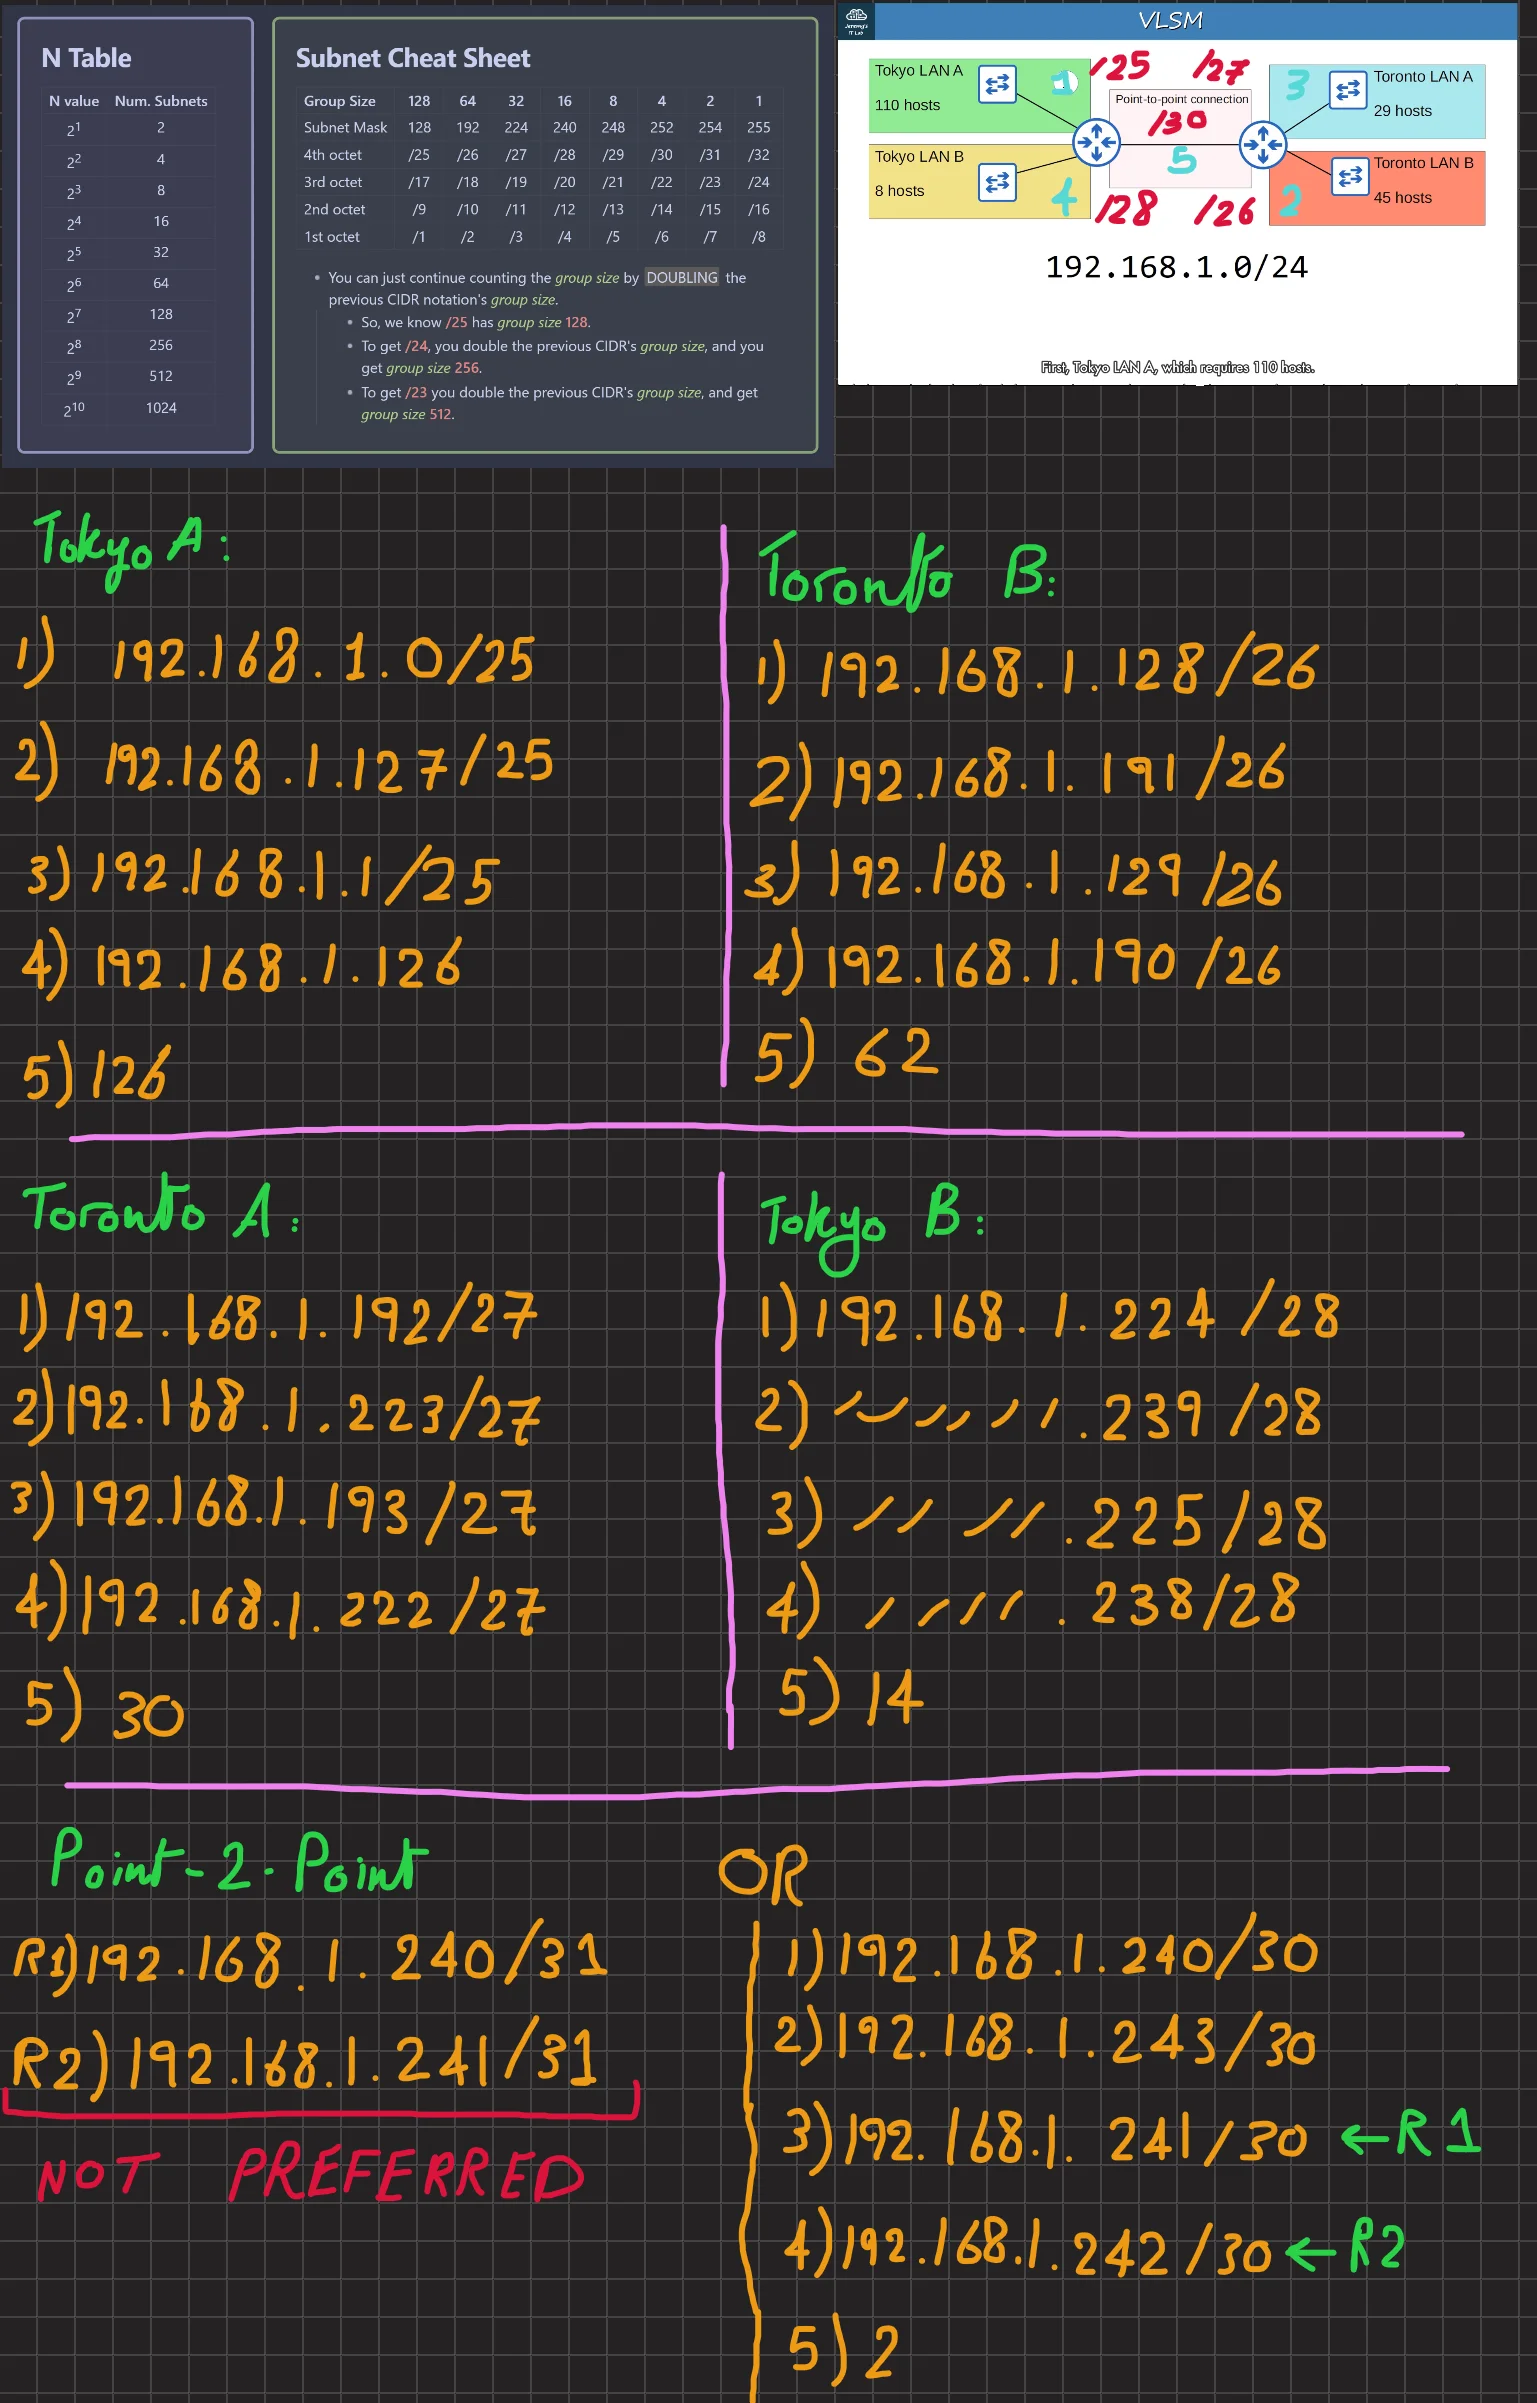 N Table
N value Num. Subnets
2^1 2
2^2 4
2^3 8
2^4 16
2^5 32
2^6 64
2^7 128
2^8 256
2^9 512
2^10 1024
Subnet Cheat Sheet
Group Size 128 64 32 16 8 4 2 1
Subnet Mask 128 192 224 240 248 252 254 255
4th octet /25 /26 /27 /28 /29 /30 /31 /32
3rd octet /17 /18 /19 /20 /21 /22 /23 /24
2nd octet /9 /10 /11 /12 /13 /14 /15 /16
1st octet /1 /2 /3 /4 /5 /6 /7 /8
• You can just continue counting the group size by DOUBLING the
previous CIDR notation's group size.
• So, we know /25 has group size 128.
• To get /24, you double the previous CIDR's group size, and you
get group size 256.
• To get /23 you double the previous CIDR's group size, and get
group size 512.
Jeremy's
IT Lab
VLSM
Tokyo LAN A
110 hosts
1
/25
/27
3
Toronto LAN A
29 hosts
Point-to-point connection
/30
5
Tokyo LAN B
8 hosts
4
/28
/26
2
Toronto LAN B
45 hosts
192.168.1.0/24
First, Tokyo LAN A, which requires 110 hosts.
Tokyo A:
1) 192.168.1.0/25
2) 192.168.1.127/25
3) 192.168.1.1/25
4) 192.168.1.126
5) 126
Toronto B:
1) 192.168.1.128/26
2) 192.168.1.191/26
3) 192.168.1.129/26
4) 192.168.1.190/26
5) 62
Toronto A:
1) 192.168.1.192/27
2) 192.168.1.223/27
3) 192.168.1.193/27
4) 192.168.1.222/27
5) 30
Tokyo B:
1) 192.168.1.224/28
2) .239/28
3) // // .225/28
4) // // .238/28
5) 14
Point-2-Point
R1) 192.168.1.240/31
R2) 192.168.1.241/31
NOT PREFERRED
OR
1) 192.168.1.240/30
2) 192.168.1.243/30
3) 192.168.1.241/30 ← R1
4) 192.168.1.242/30 ← R2
5) 2